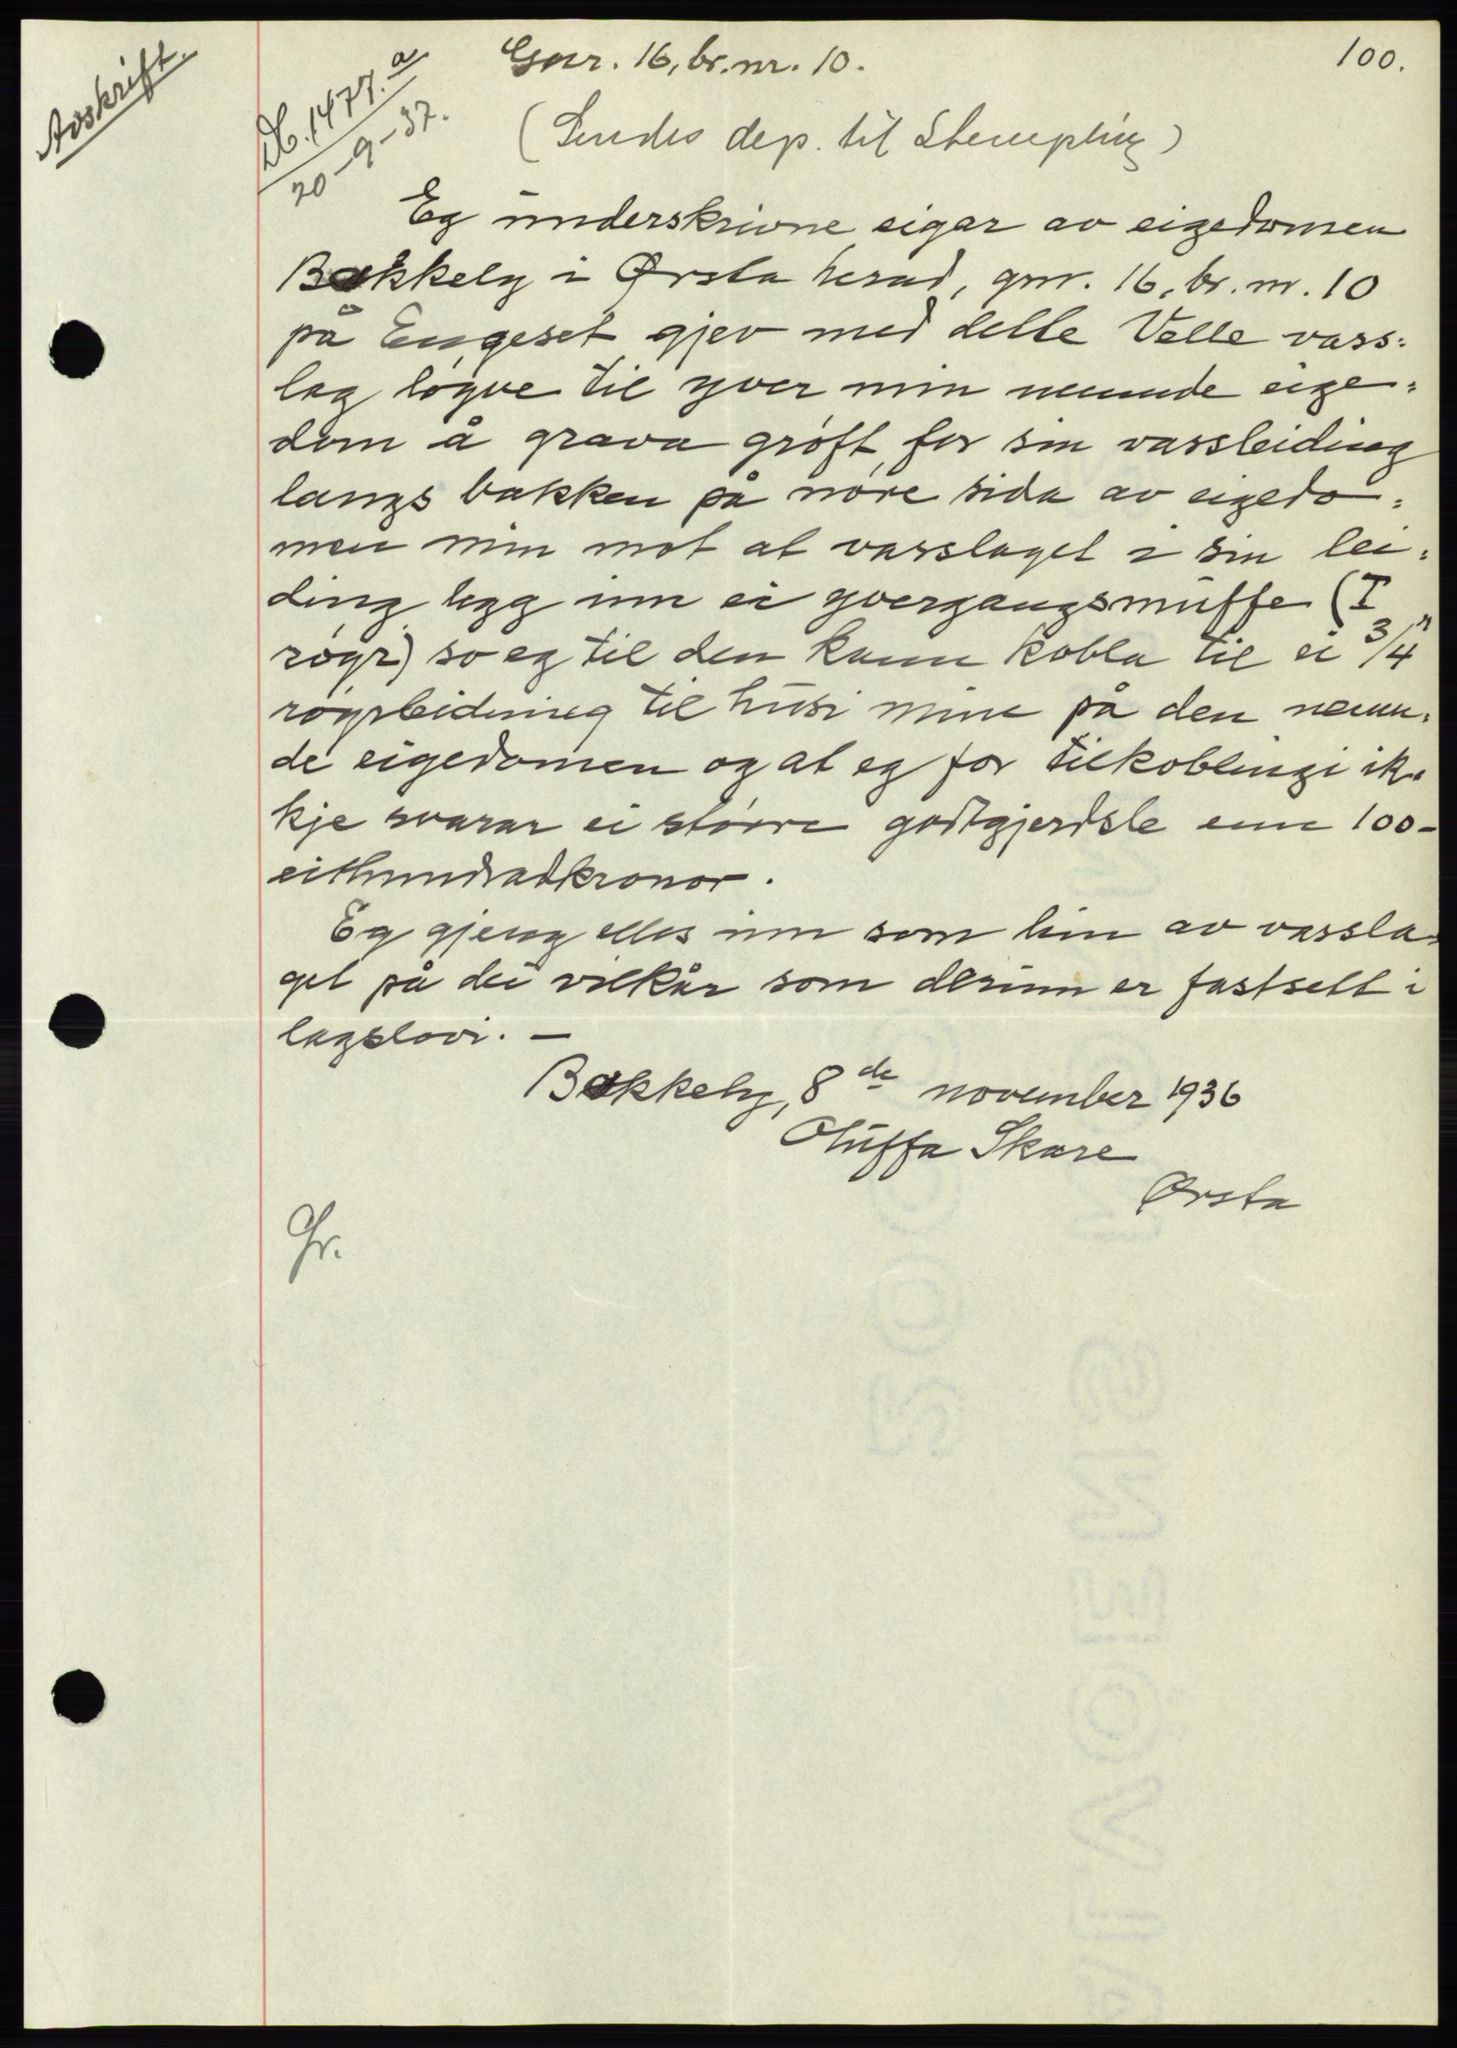 Avskrift.
Gnr. 16, br.nr. 10.
100.
Db. 1477.a
20-9-37.
(Sendes dep. til Stempling)
Eg underskrivne eigar av eigedomen
Bakkely i Ørsta herad, gnr. 16, br. nr. 10
på Engeset gjev med dette Velle vass=
lag løyve til yver min nemnde eige=
dom å grava grøft for sin vassleiding
langs bakken på nøre sida av eigedo=
men min mot at vasslaget i sin lei=
ding legg inn ei yvergangsmuffe (I
røyr) so eg til den kann kobla til ei 3/4"
røyrleidning til husi mine på den nemn=
de eigedomen og at eg for tilkoblingi ik=
kje svarar ei større godtgjerdsle enn 100-
eithundradkronor.
Eg gjeng elles inn som lim av vassla=
get på dei vilkår som derinn er fastsett i
lagslovi. —
Bakkely, 8de november 1936
Oluffa Skare
Ørsta